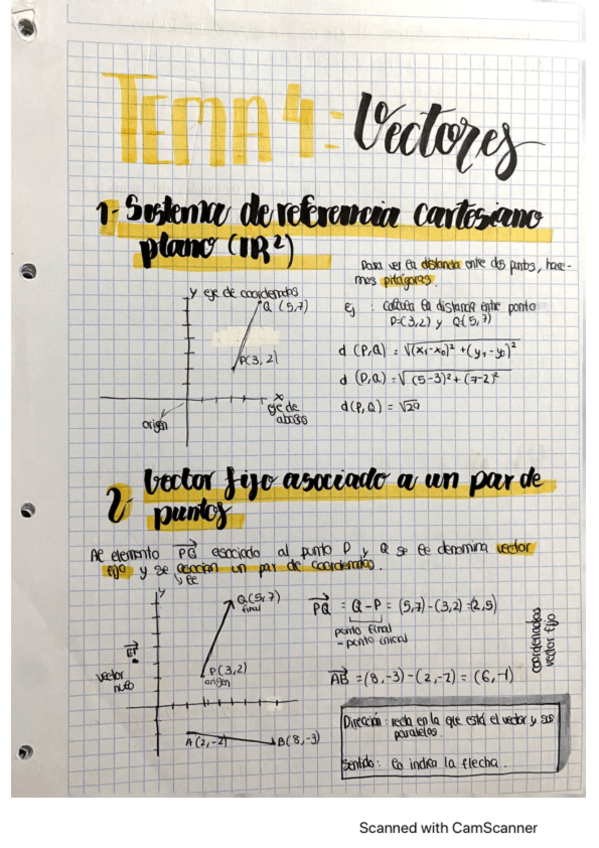 TEMA 4: Vectores
1- Sistema de referencia cartesiano
plano (IR²)
Para ver la distancia entre dos puntos, hace-
mos pitágoras.
y eje de coordenadas
Q (5,7)
P(3,2)
x
eje de
abcisas
origen
ej : calcula la distancia entre punto
P=(3,2) y Q(5,7)
d (P,Q) = √(x₁-x₀)² + (y₁-y₀)²
d (P,Q) = √(5-3)² + (7-2)²
d (P,Q) = √29
2- Vector fijo asociado a un par de
puntos
Al elemento PQ asociado al punto P y Q se le denomina vector
fijo y se asocian un par de coordenadas.
le
y
Q(5,7)
final
P(3,2)
origen
vector
nulo
A(2,-2)
B(8,-3)
PQ = Q-P = (5,7)-(3,2)=(2,5)
punto final
- punto inicial
AB = (8,-3)-(2,-2) = (6,-1)
coordenadas
vector fijo
Dirección: recta en la que está el vector y sus
paralelas.
Sentido: lo indica la flecha.
Scanned with CamScanner